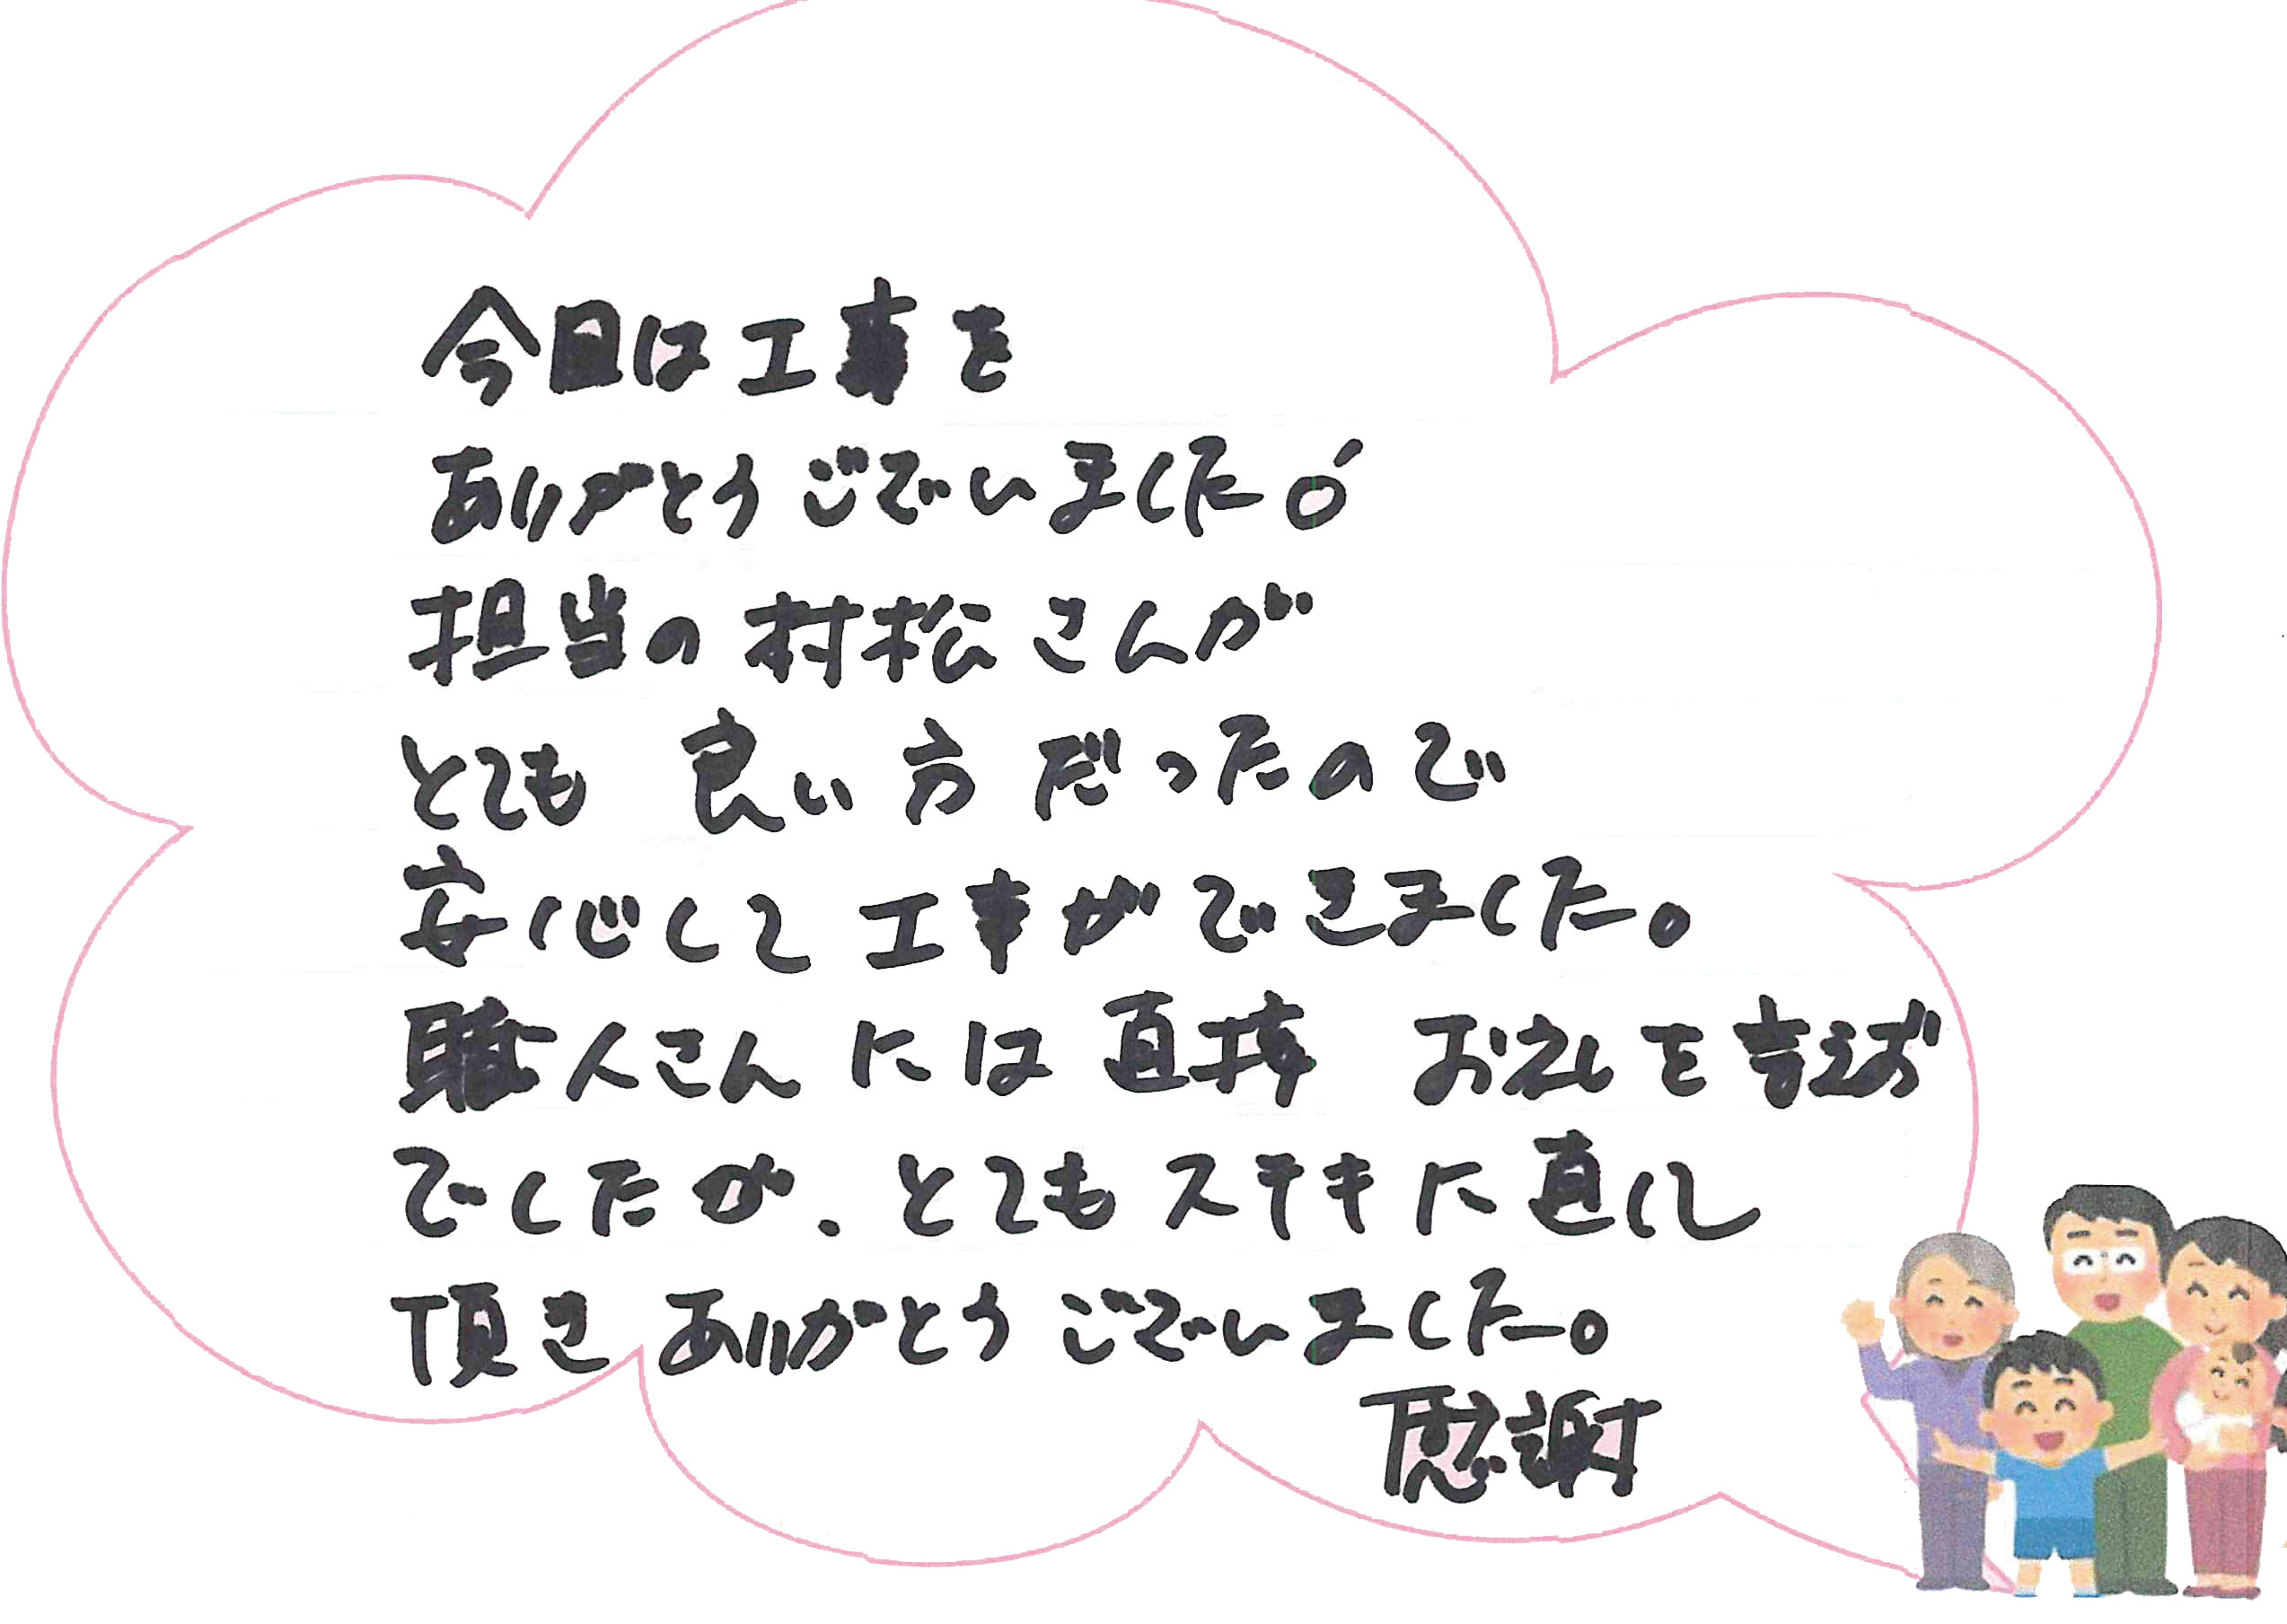 今日は工事を
ありがとうございました。
担当の村松さんが
とても 良い方だったので
安心して工事ができました。
職人さんには直接 お礼を言えず
でしたが、とてもステキに直して
頂き ありがとうございました。
感謝